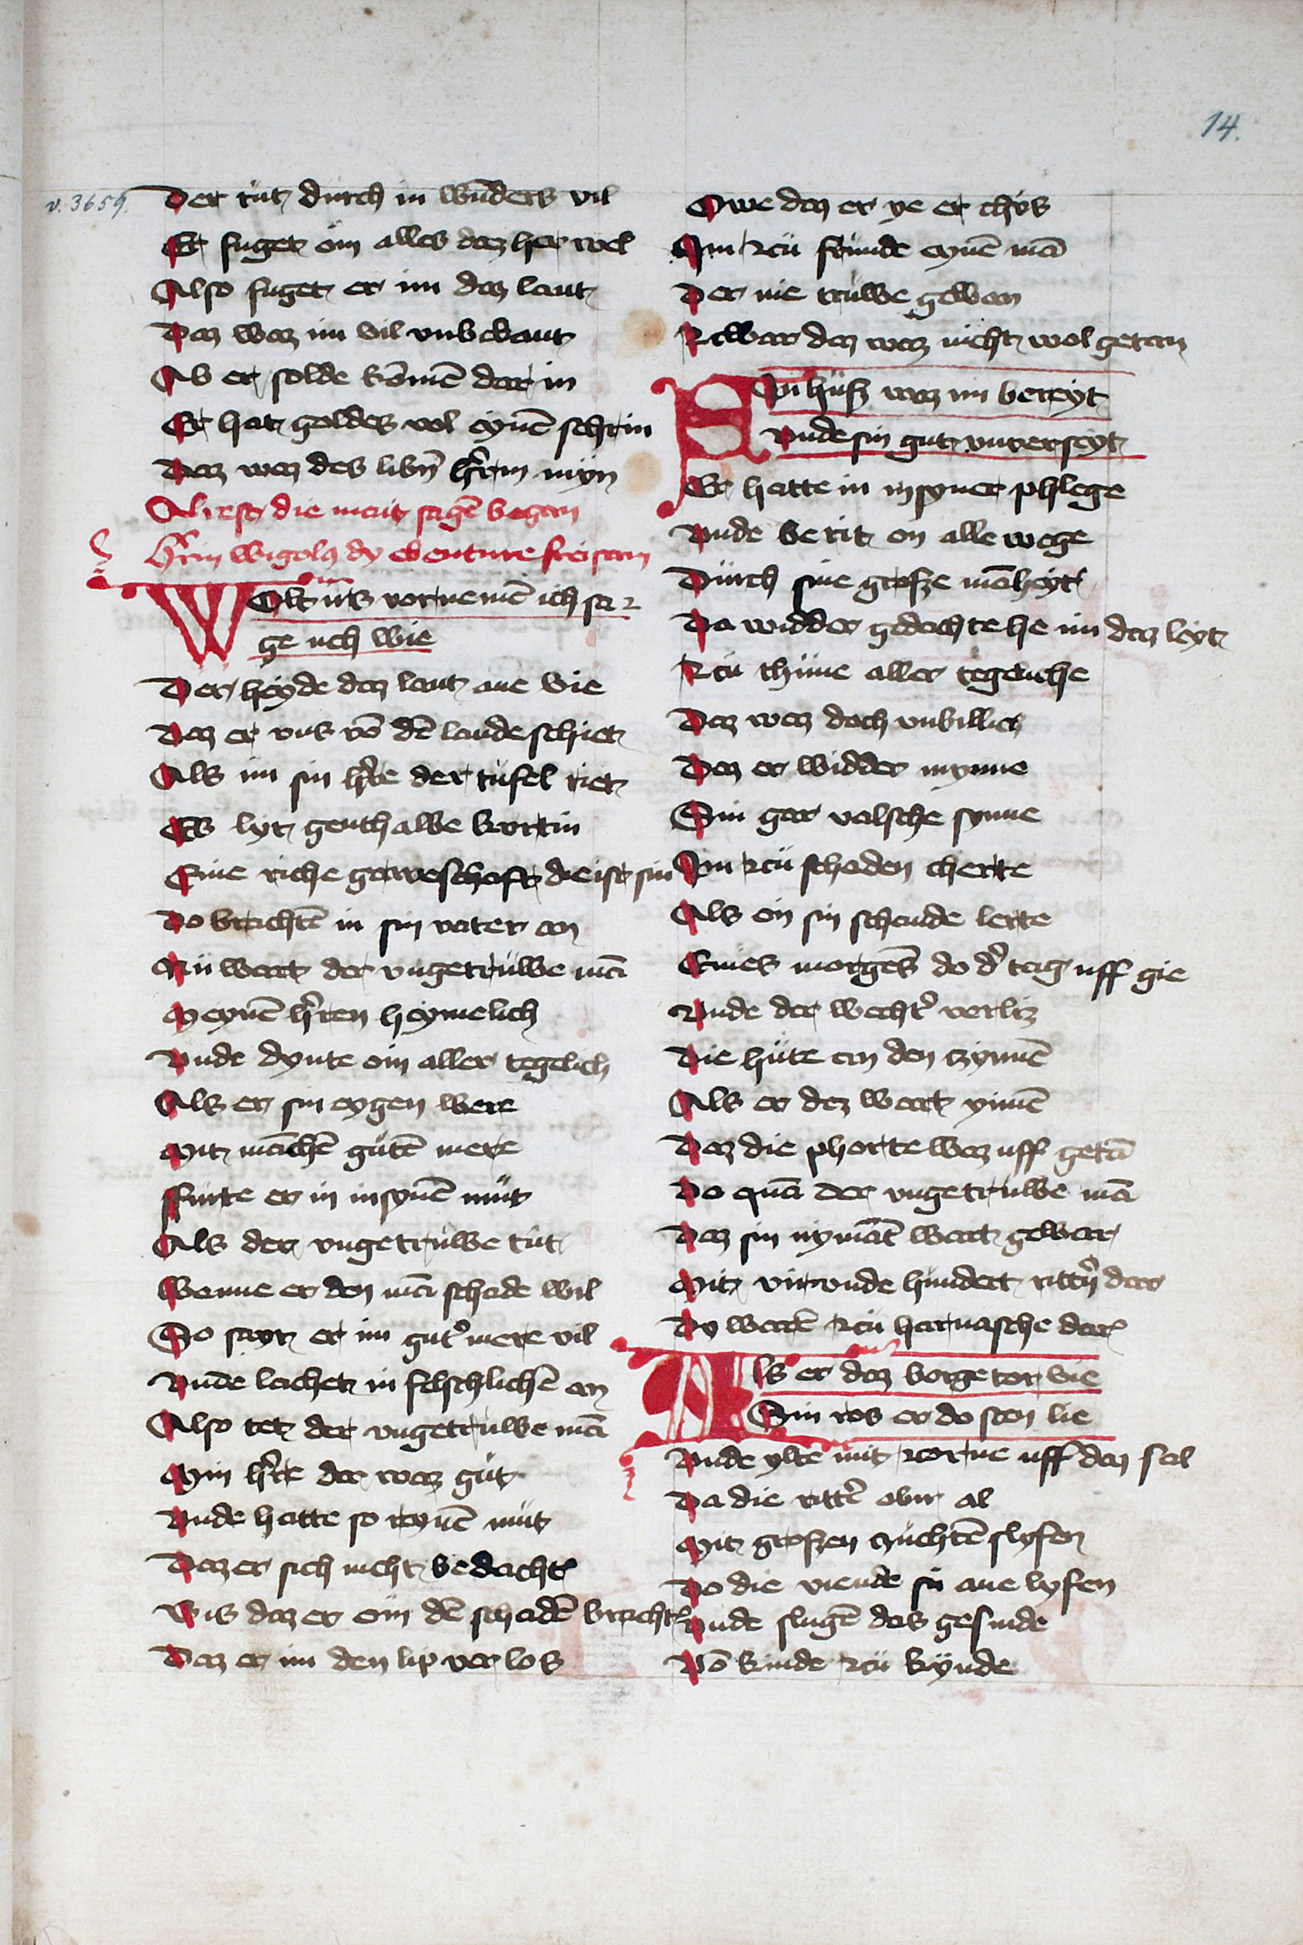 14.
v. 3659.
Der tut durch in wūders vil
Er fuget om alles daz her wel
Also fuget er im daz lant
Daz waz im vil vnbekant
Ab er solde kōmē dar in
Er hat goldes vol eynē schrin
Daz waz des libn̄ hr̄rn myn
Alrest die mait sagē began
hr̄rn wigolys dy ebenture freisam
Wolt irs vornemē ich sa
ge uch wie
Der heyde daz lant ane vie
Daz er vns vō dē lande schiet
Als im sin hr̄re der tufel riet
Es lyt genthalbe kortin
Eine riche graveschaft die ist sin
Do brachtē in sin vater an
Nü wart der vngetrüwe mā
Meynē hr̄ren heymelich
Vnde dynte om aller tegelich
Als er sin eygen were
Mit māchē gutē mere
Furte er in in synē mut
Als der vngetrüwe tut
Wanne er den mā schade wil
So sayt er im gut' mere vil
Vnde lachet in felschlichē an
Also tet der vngetruwe mā
Myn hr̄re der waz gut
Vnde hatte so reynē mut
Daz er sich nicht bedacht
Bis daz er om dē schadē bracht
Daz er im den lip ver los
Owe daz er ye er chos
Im zcü frunde eynē mā
Der nie trüwe gewan
Zcwar daz waz nicht wol getan
Sin hüß waz im bereyt
Vnde sin gut vnverseyt
Er hatte in in syner phlege
Vnde berit on alle wege
Dürch sine große māheyt
Da widder gedachte he im daz leyt
Zcü thüne aller tegeliche
Daz waz doch vnbillich
Daz er widder mynne
Sin gar valsche synne
Im zcü schaden cherte
Als on sin schande lerte
Eines morgēs do d' tag uff gie
Vnde der wecht' verliz
Die hüte an den czynnē
Als er dez wart ynnē
Daz die phorte waz uff getā
Do quā der vngetruwe mā
Daz sin nymāt wart gewar
Mit vir vnde hundert rittr̄n dar
Dy warē zcü harnasche dar
Als er daz borge tor vie
Sin ros er do sten lie
Vnde ylte mit zcorne uff den sal
Da die ritt' obir al
Mit großen zuchtē slyfen
Do die viende sü ane lyfen
Vnde slugē das gesinde
Vō kinde zcü kynde